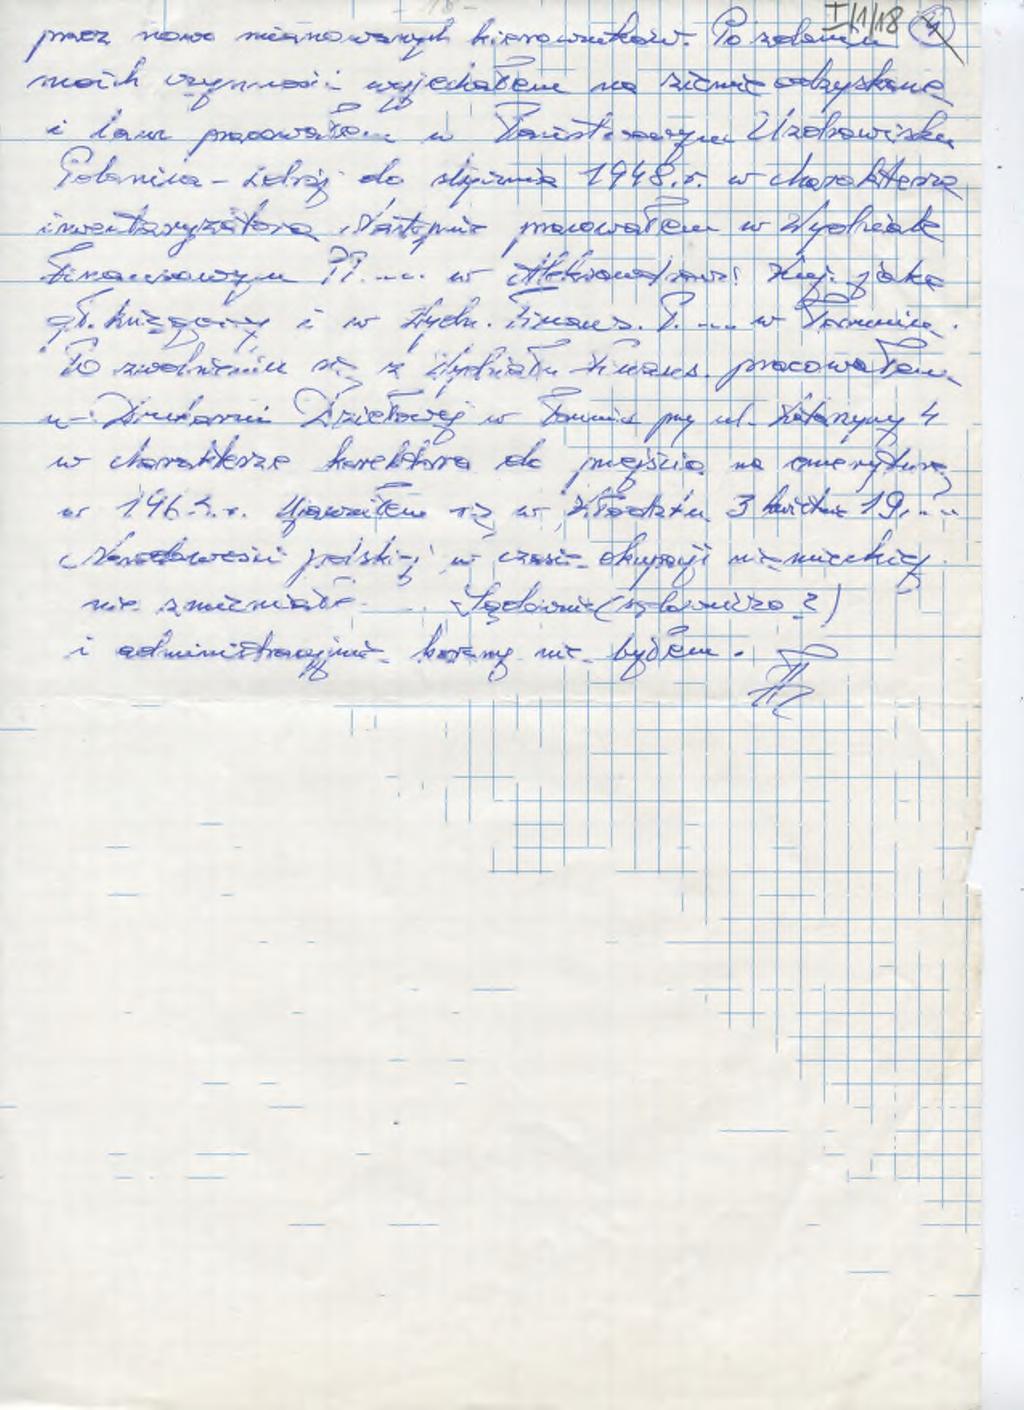 - 18 -
I/1/18 4
przez nowo mianowanych kierowników. Po zdaniu
moich czynności wyjechałem na ziemie odzyskane
i tam pracowałem w Państwowym Uzdrowisku
Polanica - Zdrój do stycznia 1948 r. w charakterze
inwentaryzatora. Następnie pracowałem w Wydziale
Finansowym P.... w Aleksandrowie Kuj. jako
gł. księgowy i w Wydz. Finans. P. .... w Toruniu.
Po zwolnieniu się z Wydziału Finans. pracowałem
w Drukarni Dziełowej w Toruniu przy ul. Katarzyny 4
w charakterze korektora do przejścia na emeryturę
w r. Ujawniłem się w Kłodzku 3 kwietnia 19....
Narodowości polskiej w czasie okupacji niemieckiej
nie zmieniałem. Sądownie (sądowniczo?)
i administracyjnie karany nie byłem.